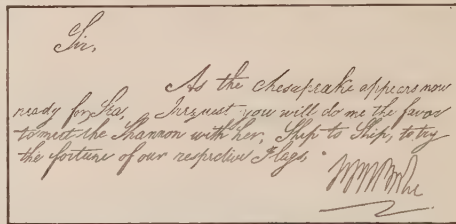 Sir,
As the Chesapeake appears now
ready for Sea, I request you will do me the favor
to meet the Shannon with her, Ship to Ship, to try
the fortune of our respective Flags.